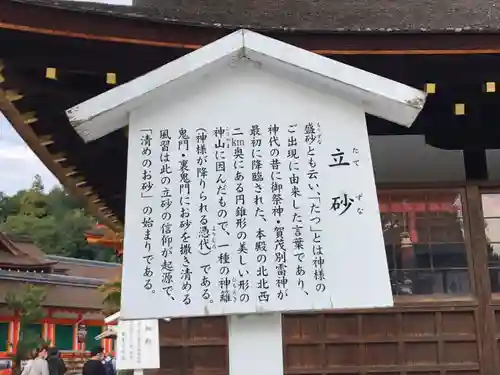 立砂
たてずな
盛砂とも云い、「たつ」とは神様の
もりずな
ご出現に由来した言葉である。
神代の昔に御祭神・賀茂別雷神が
最初に降臨された、本殿の北北西
二km奥にある円錐形の美しい形の
こうやま
神山に因んだもので、一種の神籬
ひもろぎ
(神様が降りられる憑代)である。
よりしろ
鬼門・裏鬼門にお砂を撒き清める
風習は此の立砂の信仰が起源で、
「清めのお砂」の始まりである。